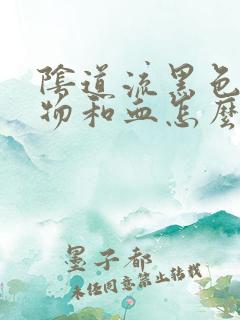 陰道流黑色
物和血怎麼
墨子都
未经同意禁止转载